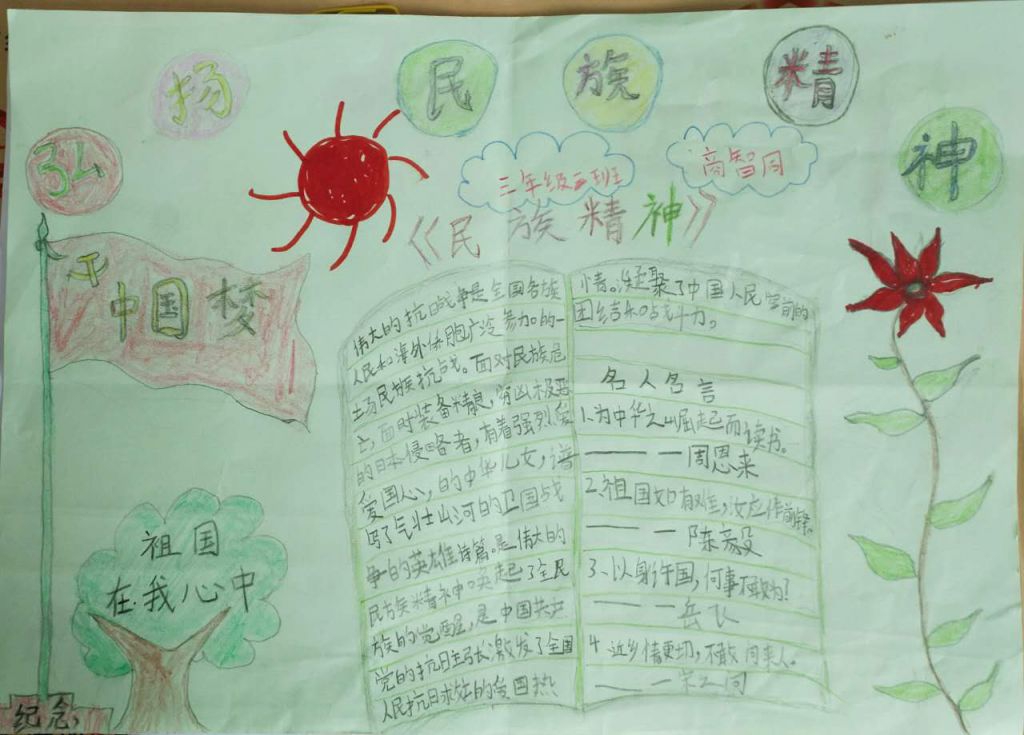 弘扬民族精神
三年级五班
商智同
《民族精神》
中国梦
祖国
在我心中
纪念
伟大的抗日战争是全国各族
人民和海外侨胞广泛参加的一
场民族抗战。面对民族危
亡,面对装备精良,穷凶极恶
的日本侵略者,有着强烈爱
爱国心,的中华儿女,谱
写了气壮山河的卫国战
争的英雄诗篇。是伟大的
民族精神唤起了全民
族的觉醒,是中国共产
党的抗日主张激发了全国
人民抗日求生的爱国热
情。凝聚了中国人民空前的
团结和战斗力。
名人名言
1.为中华之崛起而读书。
——一周恩来
2.祖国如有难,汝应作前锋。
——一陈毅
3、以身许国,何事不敢为!
——一岳飞
4 近乡情更切,不敢问来人。
——一宋之问